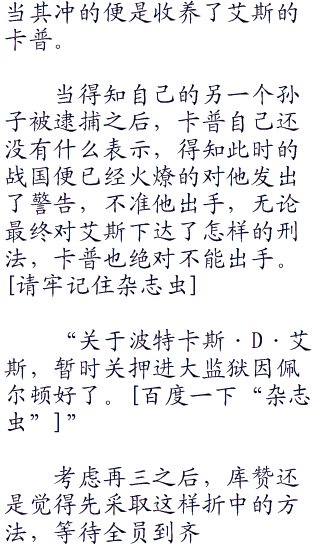 当其冲的便是收养了艾斯的
卡普。
当得知自己的另一个孙
子被逮捕之后，卡普自己还
没有什么表示，得知此时的
战国便已经火燎的对他发出
了警告，不准他出手，无论
最终对艾斯下达了怎样的刑
法，卡普也绝对不能出手。
[请牢记住杂志虫]
“关于波特卡斯·D·艾
斯，暂时关押进大监狱因佩
尔顿好了。[百度一下“杂志
虫”]”
考虑再三之后，库赞还
是觉得先采取这样折中的方
法，等待全员到齐